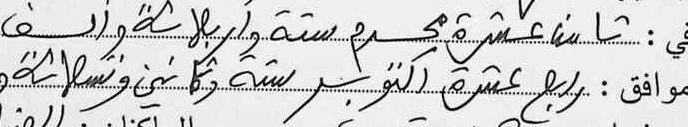 في : ثامن عشرة محرم ستة وأربعمائة وألف
موافق : رابع عشرة أكتوبر ستة وثمانين وتسعمائة و